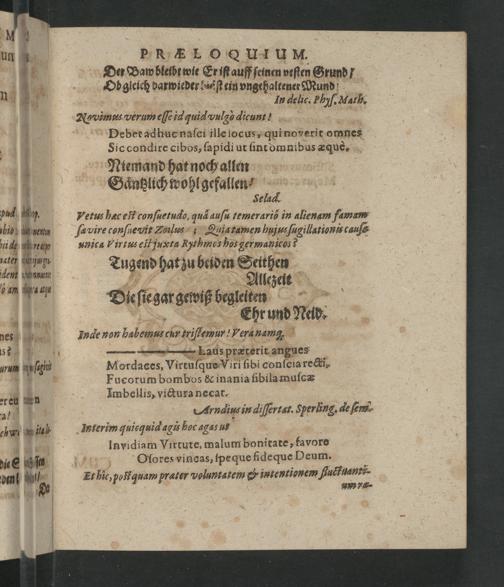 PRÆLOQUIUM.
Der Baw bleibt wie Er ist auff seinen vesten Grund /
Ob gleich darwieder ist ein ungehaltener Mund /
In delic. Phys. Math.
Novimus verum esse id quid vulgò dicunt !
Debet adhuc nasci ille locus, qui noverit omnes
Sic condire cibos, sapidi ut sint omnibus æquè.
Niemand hat noch allen
Gäntzlich wohl gefallen /
Selad.
Vetus hac est consuetudo, quâ ausu temerariô in alienam famam
sævire consuevit Zoilus ; Quia tamen hujus sugillationis causa
unica Virtus est juxta Rythmos hos germanicos ?
Tugend hat zu beiden Seithen
Allezeit
Die sie gar gewiß begleiten
Ehr und Neid.
Inde non habemus cur tristemur ! Vera namq;
Laus præterit angues
Mordaces, Virtusque Viri sibi conscia recti,
Fucorum bombos & inania sibila muscæ
Imbellis, victura necat.
Arndius in dissertat. Sperling. de sem.
Interim quicquid agis hoc agas ut
Invidiam Virtute, malum bonitate, favore
Osores vincas, speque fideque Deum.
Et hic, postquam præter voluntatem & intentionem fluctuanti-
um ra-